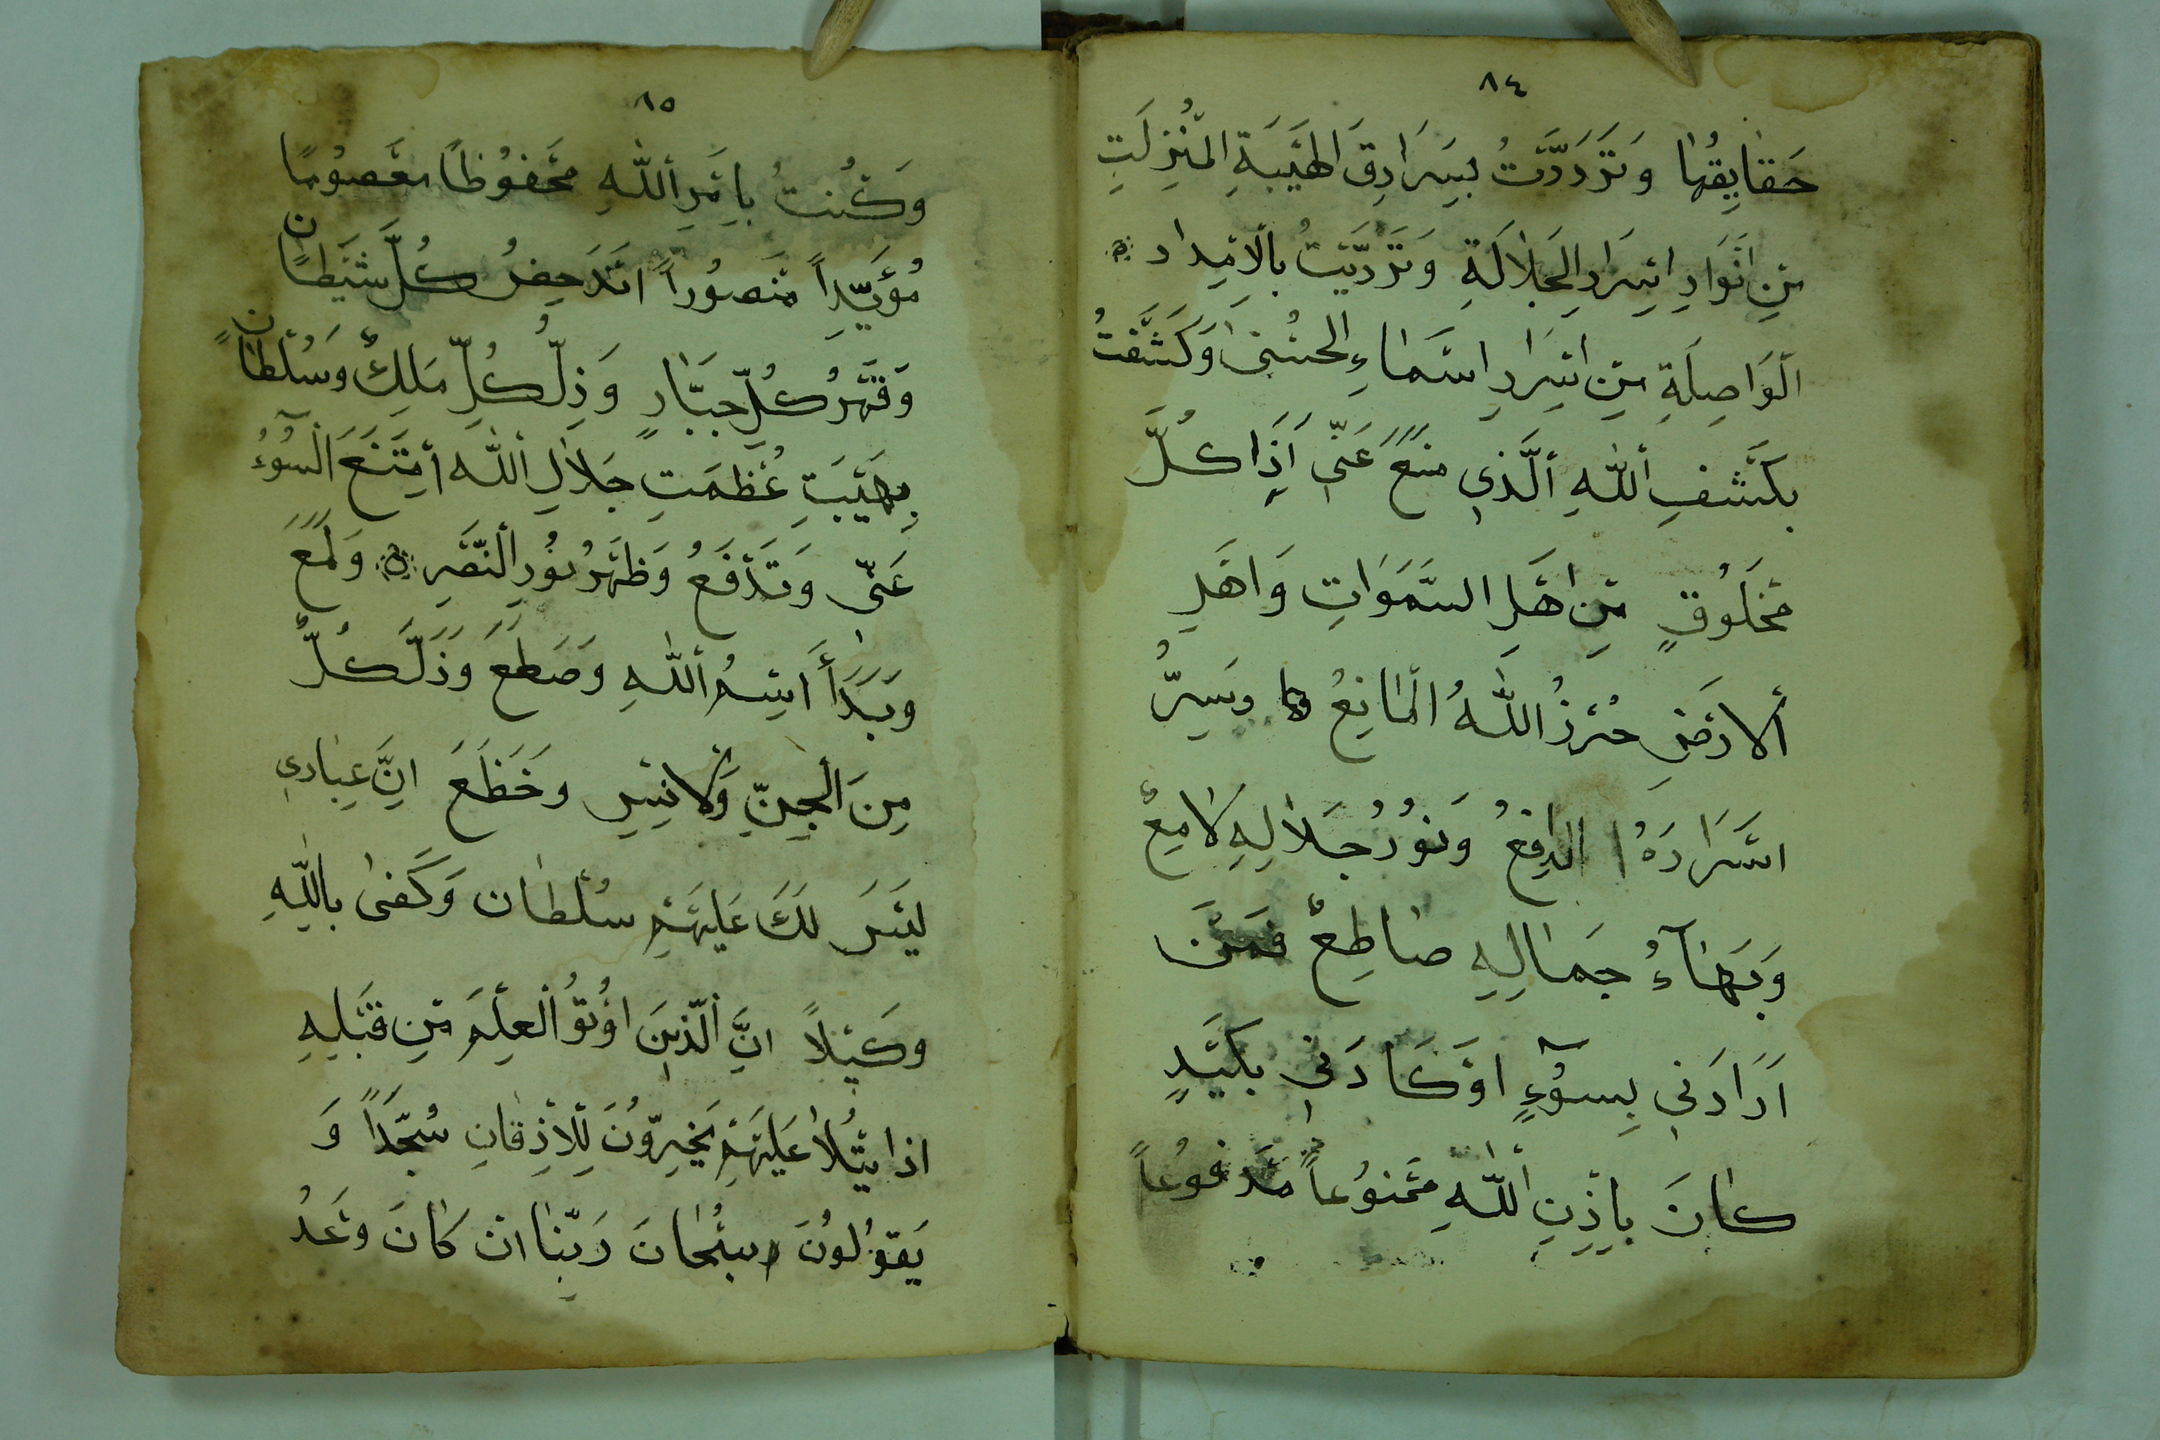 ٨٤
حَقَايِقُهَا وَتَرَدَّدَتُ بِسَرَادِقَ الهَيْبَةِ المُنْزِلَتِ
مِنِ انْوَارِ اسْرَارِ الجَلَالَةِ وَتَرَدَّيْتُ بِالامْدِاد
الْوَاصِلَةِ مِنِ اسْرَارِ اسْمَاءِ الحُسْنَىٰ وَكَشَفْتُ
بِكَشْفِ اللّٰهِ الَّذِي مَنَعَ عَنِّي اَذَا كُلَّ
مَخْلُوقٍ مِنِ اهْلِ السَّمَوَاتِ وَاهْلِ
الارْضِ حُرْزُ اللّٰهُ المَانِعُ وسِرُّ
اسْرَارَهُ الدافِعُ وَنُورُ جَلَالِهِ لَامِعٌ
وَبَهَآءُ جَمَالِهِ صَاطِعٌ فَمَنْ
اَرَادَنِي بِسُوۤءٍ اوْكَادَنِي بِكَيْدٍ
كَانَ بِاِذِنِ اللّٰهِ مَمْنُوعاً مَدْفُوعاً
٨٥
وَكُنْتُ بِاِمْرِ اللّٰهِ مَحْفُوظاً مَعْصُومًا
مُؤَيِّداً مَنْصُوراً انْدَحِضُ كُلَّ شَيْطَانٍ
وَقَهْرُ كُلِّ جَبَّارٍ وَذِلُّ كُلِّ مَلِكٌ وَسُلْطَانٍ
بِهَيْبَتِ عُظْمَتِ جَلَالِ اللّٰه امْتَنَعَ الْسُوۤءُ
عَنِّي وَتَدْفَعُ وَظَهْرُ نُورِ النَّصْرِ وَلَمَعَ
وَبَدَأَ اسْمُ اللّٰهِ وَصَطَعَ وَذَلَّ كُلٌّ
مِنَ الْجِنِّ وَلانْسِ وخَظَعَ انَّ عِبَادي
لَيْسَ لَكَ عَلَيْهِمْ سُلْطَان وَكَفَىٰ بِاللّٰهِ
وكَيْلاً انَّ الَّذِينَ اوُتُوُ الْعِلْمَ مِنِ قَبْلِهِ
اذا يُتْلَا عَلَيْهِمْ يَخِرّوُنَ لِلْاَذِقَانِ سُجَّدَاً وَ
يَقوُلُونَ سُبْحَانَ رَبِّنَا ان كَانَ وَعْدُ